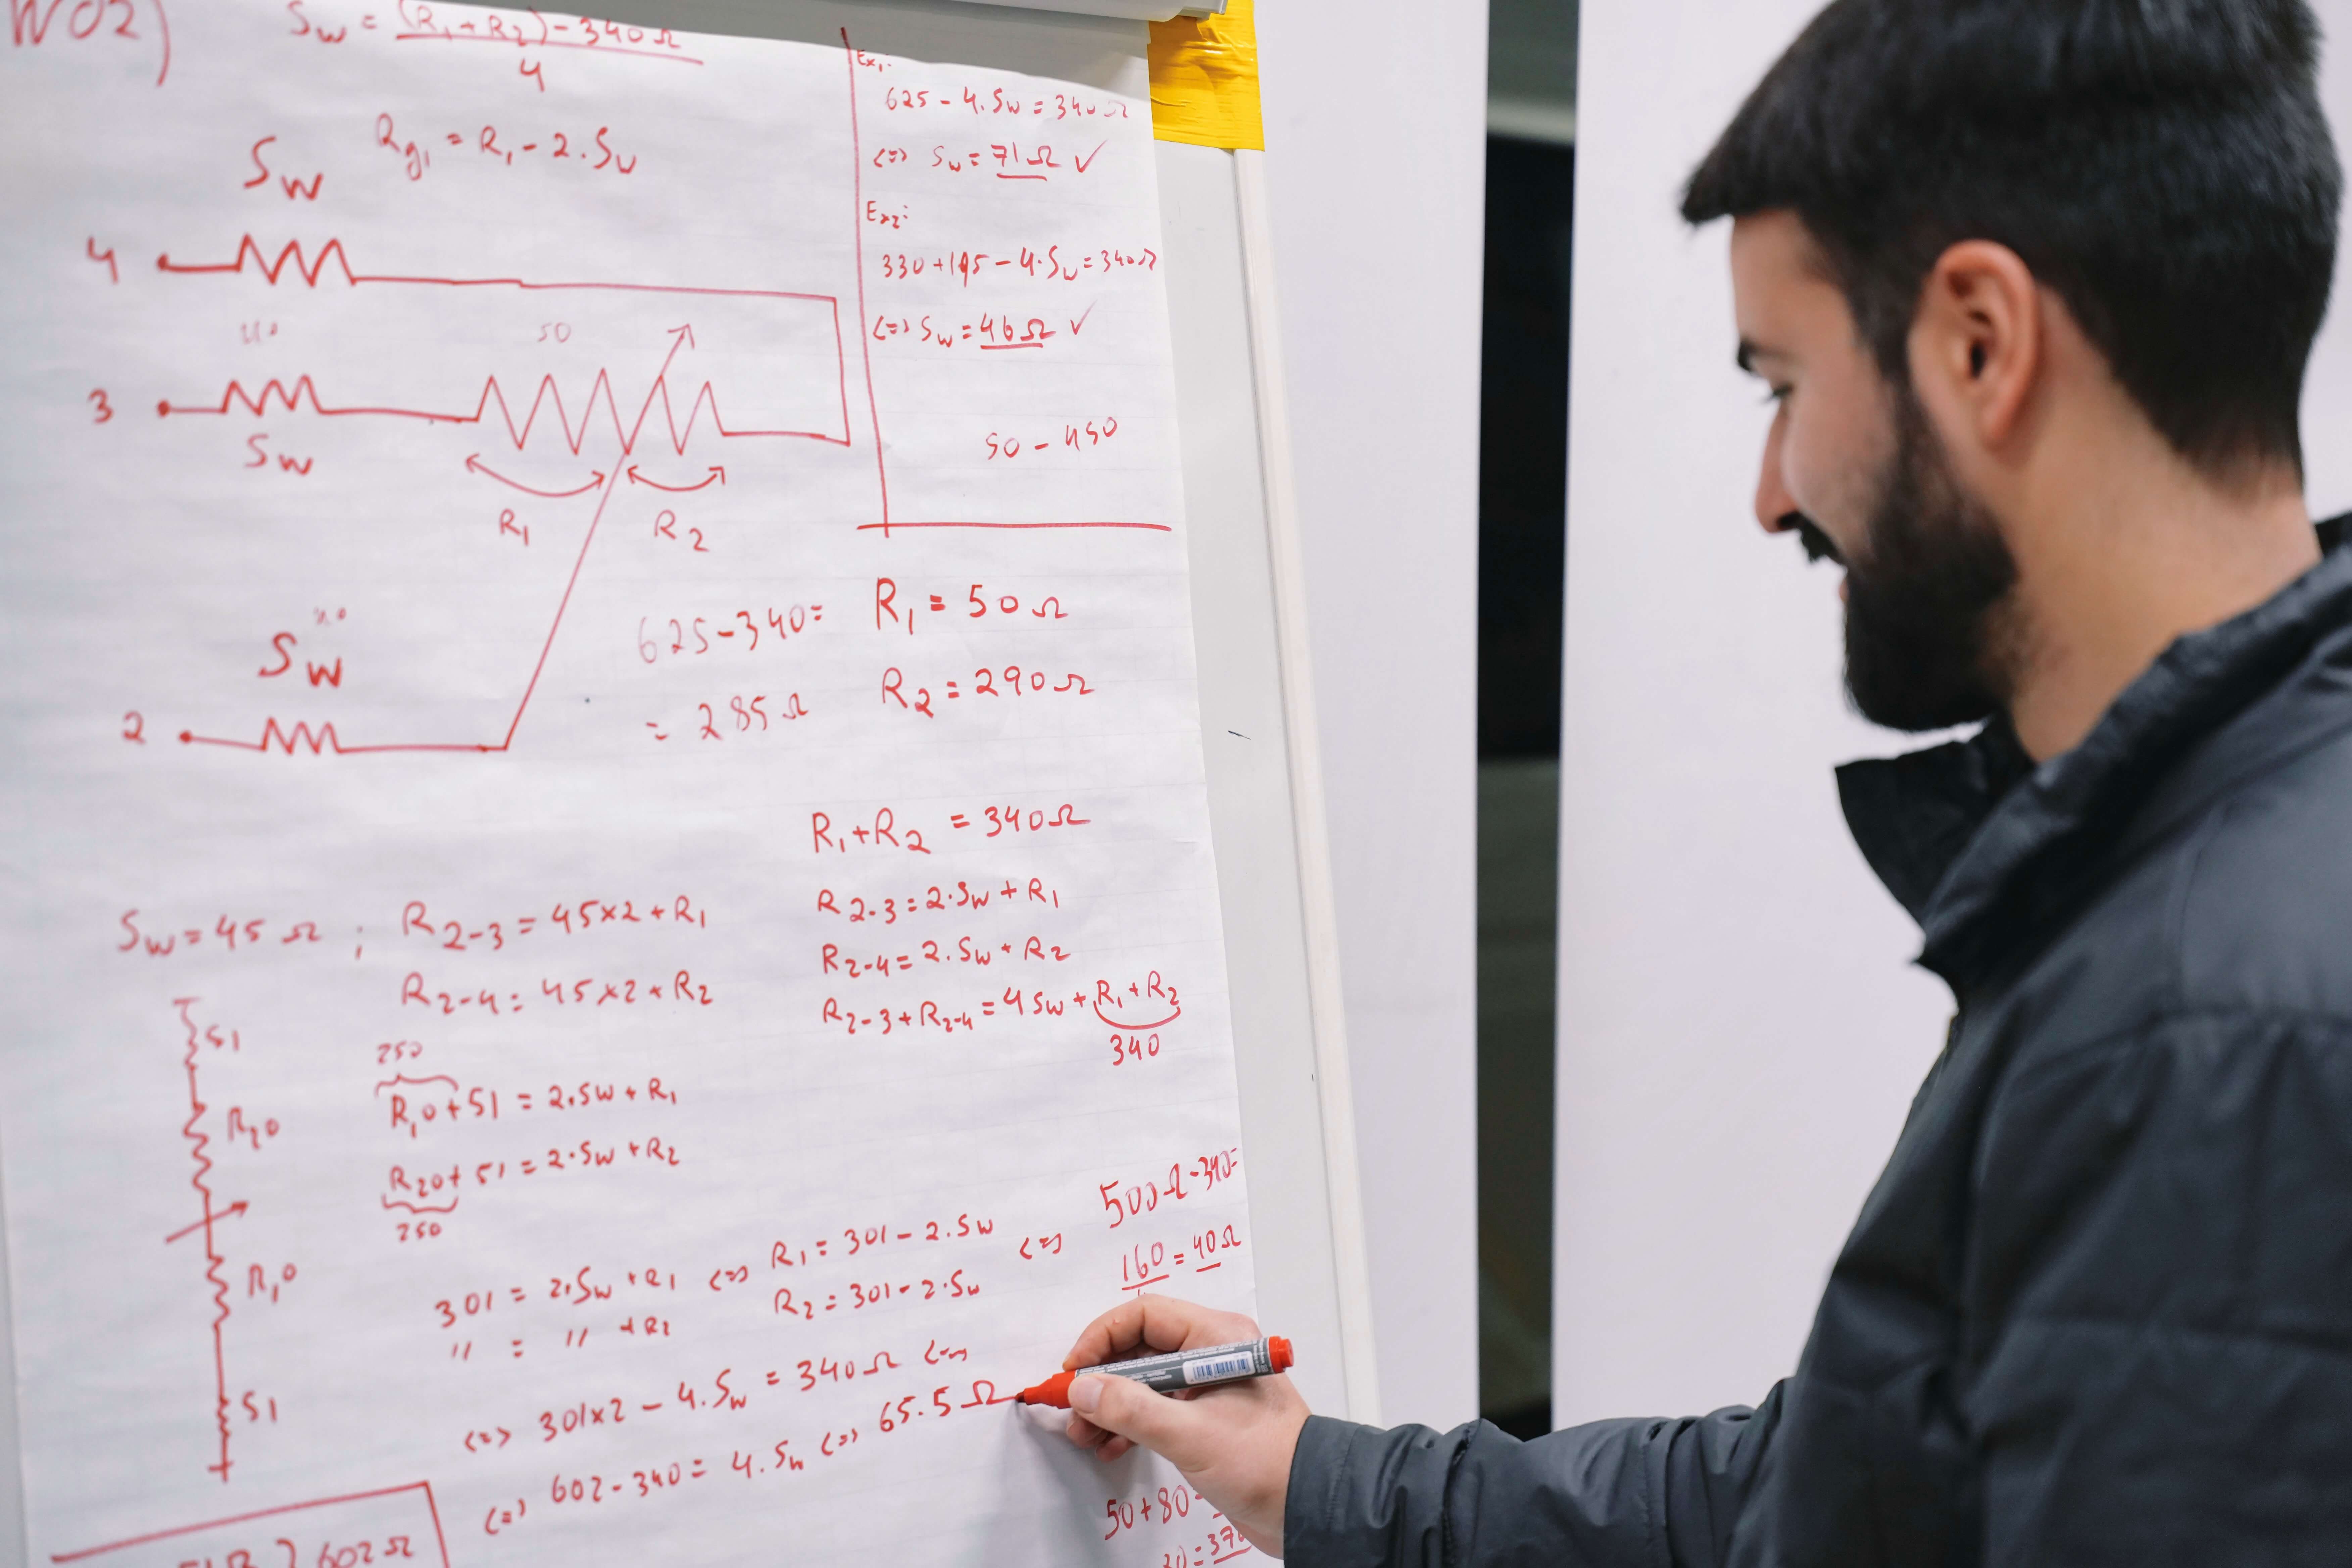 W02)
Sw = (R1 + R2) - 340Ω
4
Rg1 = R1 - 2.Sw
Sw
4
50
3
Sw
R1
R2
Sw
2
Ex1:
625 - 4.Sw = 340Ω
<=> Sw = 71Ω ✓
Ex2:
330 + 195 - 4.Sw = 340Ω
<=> Sw = 46Ω ✓
50 - 450
625 - 340 =
= 285Ω
R1 = 50Ω
R2 = 290Ω
R1 + R2 = 340Ω
R2-3 = 2.Sw + R1
R2-4 = 2.Sw + R2
R2-3 + R2-4 = 4Sw + R1 + R2
340
Sw = 45Ω ; R2-3 = 45x2 + R1
R2-4 = 45x2 + R2
51
R20
R10
51
250
R10 + 51 = 2.Sw + R1
R20 + 51 = 2.Sw + R2
250
301 = 2.Sw + R1 <=> R1 = 301 - 2.Sw <=>
" = " + R2 R2 = 301 - 2.Sw
<=> 301x2 - 4.Sw = 340Ω <=>
<=> 602 - 340 = 4.Sw <=> 65.5Ω
500Ω - 340 =
160 = 40Ω
50 + 80
= 370
602Ω